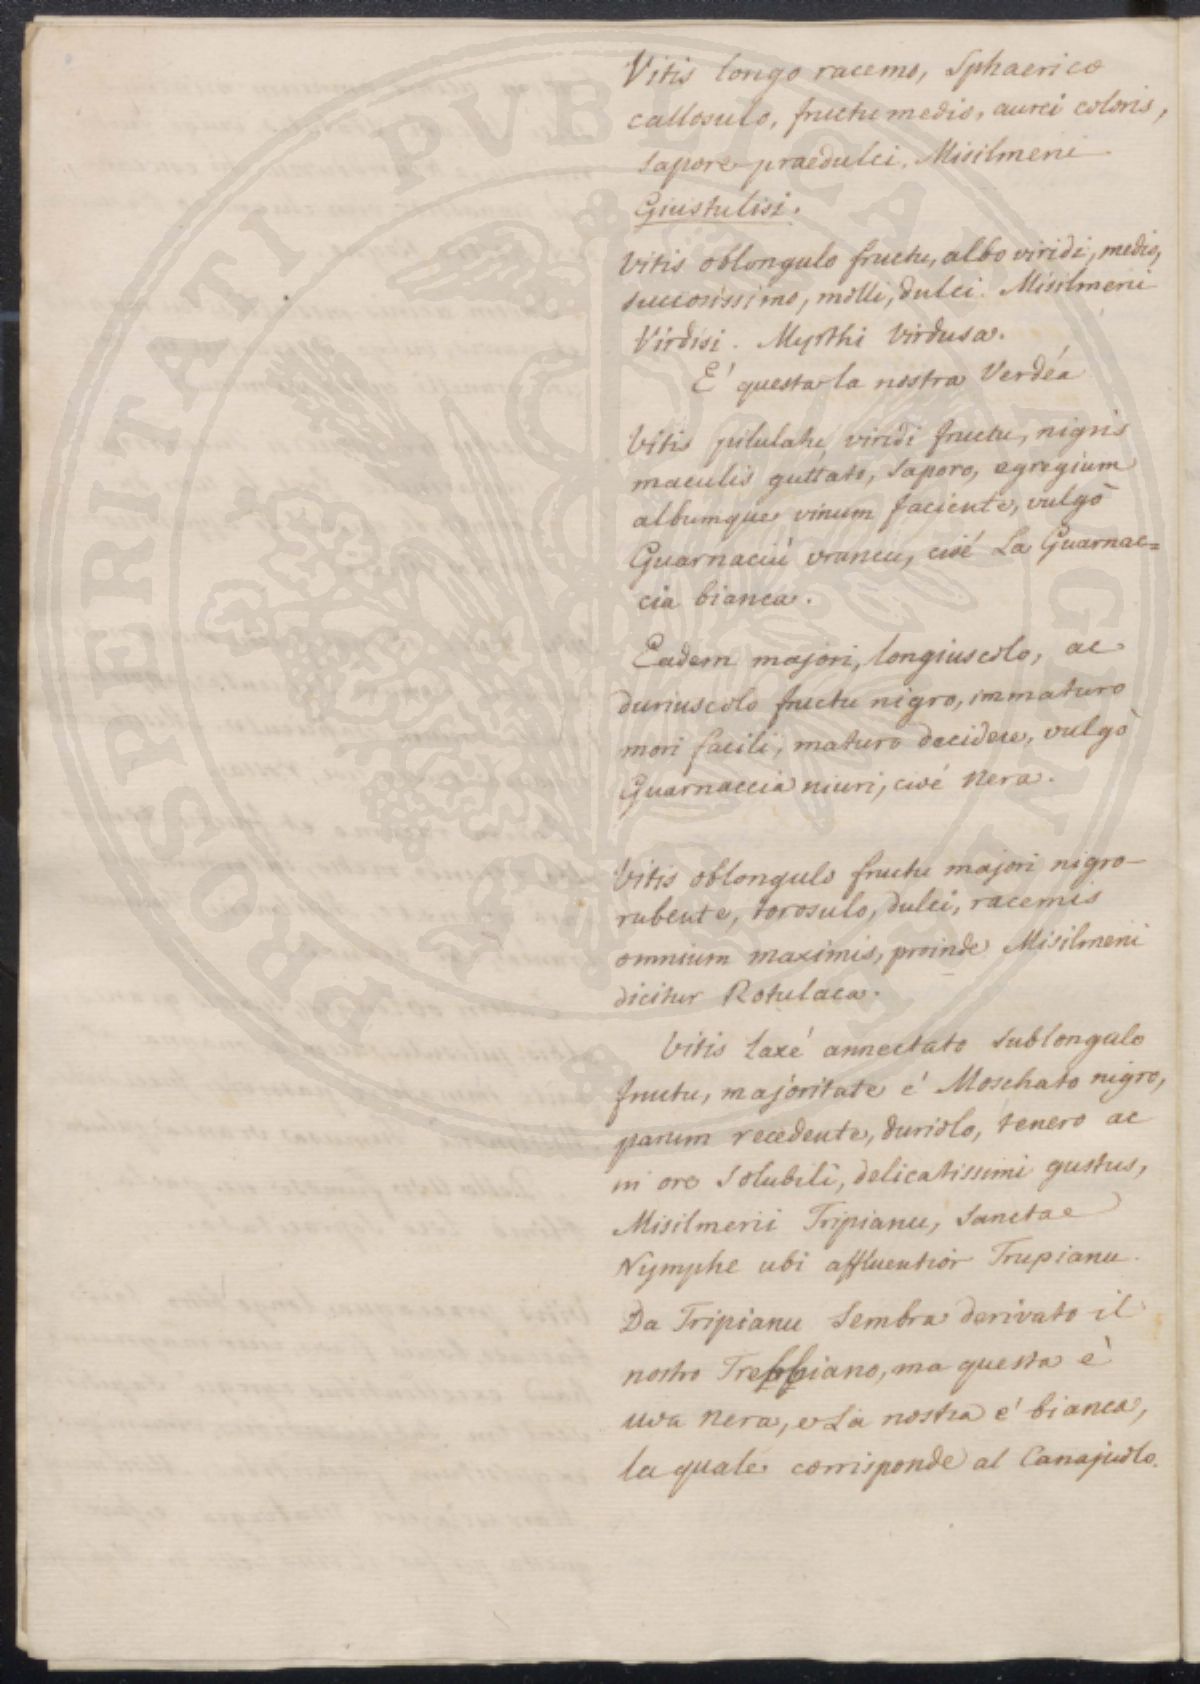 Vitis longo racemo, Sphaerico
callosulo, fructu medio, aurei coloris,
sapore praedulci. Misilmerii
Giustulisi.
Vitis oblongulo fructu, albo viridi, medio,
succosissimo, molli, dulci. Misilmerii
Virdisi. Myrthi Virdusa.
E' questa la nostra Verdéa
Vitis pilulato, viridi fructu, nigris
maculis guttato, Saporo, egregium
albumque vinum faciente, vulgò
Guarnaciù vrancu, cioé La Guarnac=
cia bianca.
Eadem majori, longiuscolo, ac
duriuscolo fructu nigro, immaturo
mori facili, maturo decidere, vulgò
Guarnaccia niuri, cioé Nera.
Vitis oblongulo fructu majori nigro-
rubente, torosulo, dulci, racemis
omnium maximis, proinde Misilmeni
dicitur Rotulaca.
Vitis laxé annectato sublongulo
fructu, majoritate é Moschato nigro,
parum recedente, duriolo, tenero ac
in ore Solubili, delicatissimi gustus,
Misilmerii Tripianu, Sanctae
Nymphe ubi affluentior Trupianu.
Da Tripianu Sembra derivato il
nostro Trebbiano, ma questa è
uva Nera, e La nostra e' bianca,
la quale corrisponde al Canajuolo.
PROSPERITATI PVBLICAE AVGENDAE